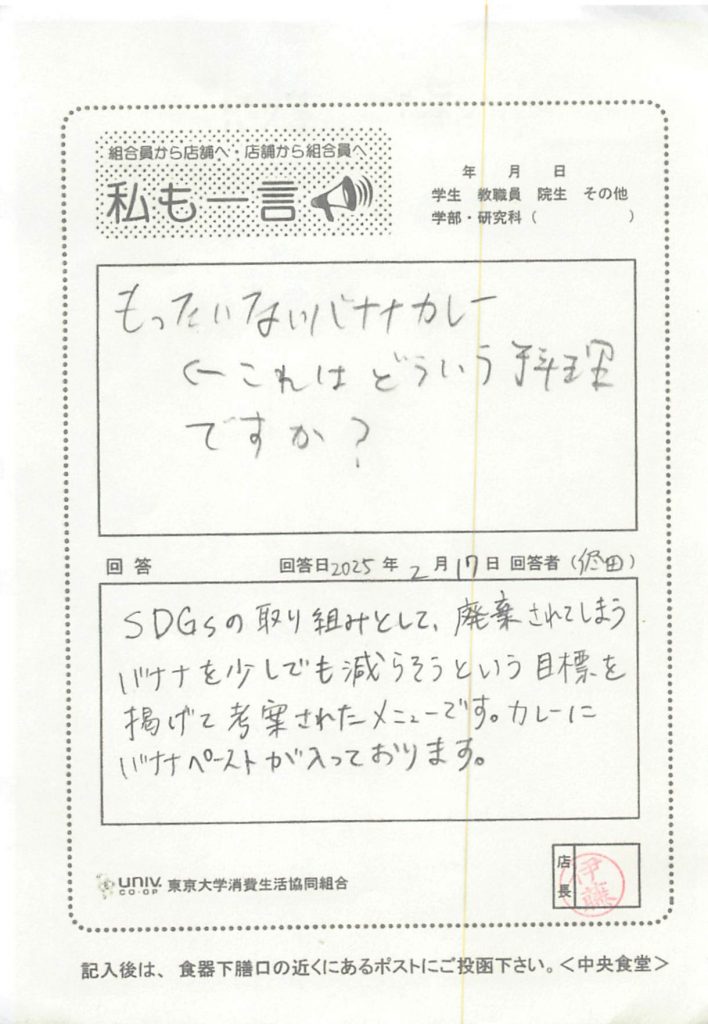 組合員から店舗へ・店舗から組合員へ
私も一言
年 月 日
学生 教職員 院生 その他
学部・研究科( )
もったいないバナナカレー
←これはどういう料理
ですか?
回答 回答日2025年2月17日 回答者(田)
SDGsの取り組みとして、廃棄されてしまう
バナナを少しでも減らそうという目標を
掲げて考案されたメニューです。カレーに
バナナペーストが入っております。
店長 伊藤
UNIV. CO-OP 東京大学消費生活協同組合
記入後は、食器下膳口の近くにあるポストにご投函下さい。<中央食堂>